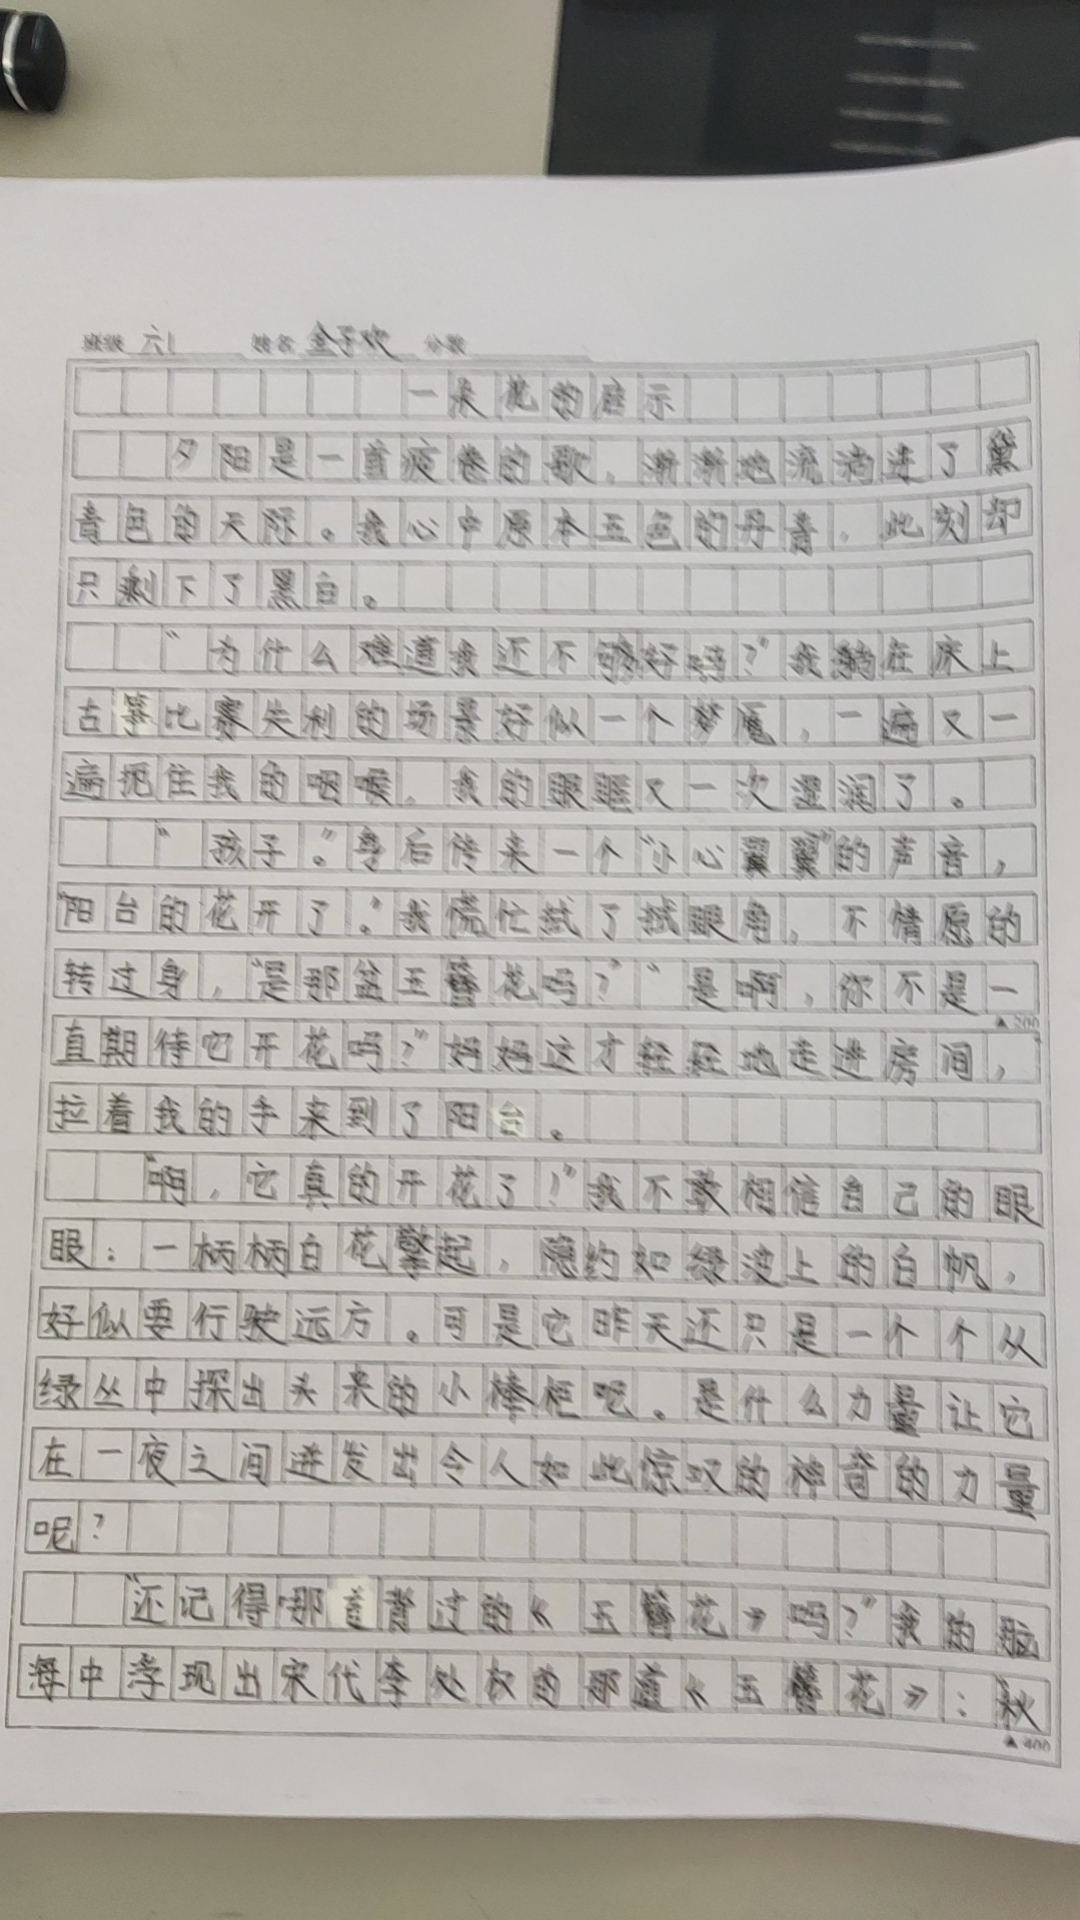 班级 六1 姓名 金子欢 分数
一朵花的启示
夕阳是一首疲倦的歌,渐渐地流淌进了黛
青色的天际。我心中原本五色的丹青,此刻却
只剩下了黑白。
“为什么难道我还不够好吗?”我躺在床上
古筝比赛失利的场景好似一个梦魇,一遍又一
遍扼住我的咽喉,我的眼眶又一次湿润了。
“孩子。”身后传来一个“小心翼翼”的声音,
“阳台的花开了。”我慌忙拭了拭眼角,不情愿的
转过身,“是那盆玉簪花吗?”“是啊,你不是一
▲200
直期待它开花吗?”妈妈这才轻轻地走进房间,
拉着我的手来到了阳台。
“啊,它真的开花了!”我不敢相信自己的眼
眼:一柄柄白花擎起,隐约如绿波上的白帆,
好似要行驶远方。可是它昨天还只是一个个从
绿丛中探出头来的小棒槌呢。是什么力量让它
在一夜之间迸发出令人如此惊叹的神奇的力量
呢?
“还记得那首背过的《玉簪花》吗?”我的脑
海中浮现出宋代李处权的那首《玉簪花》:“秋
▲400